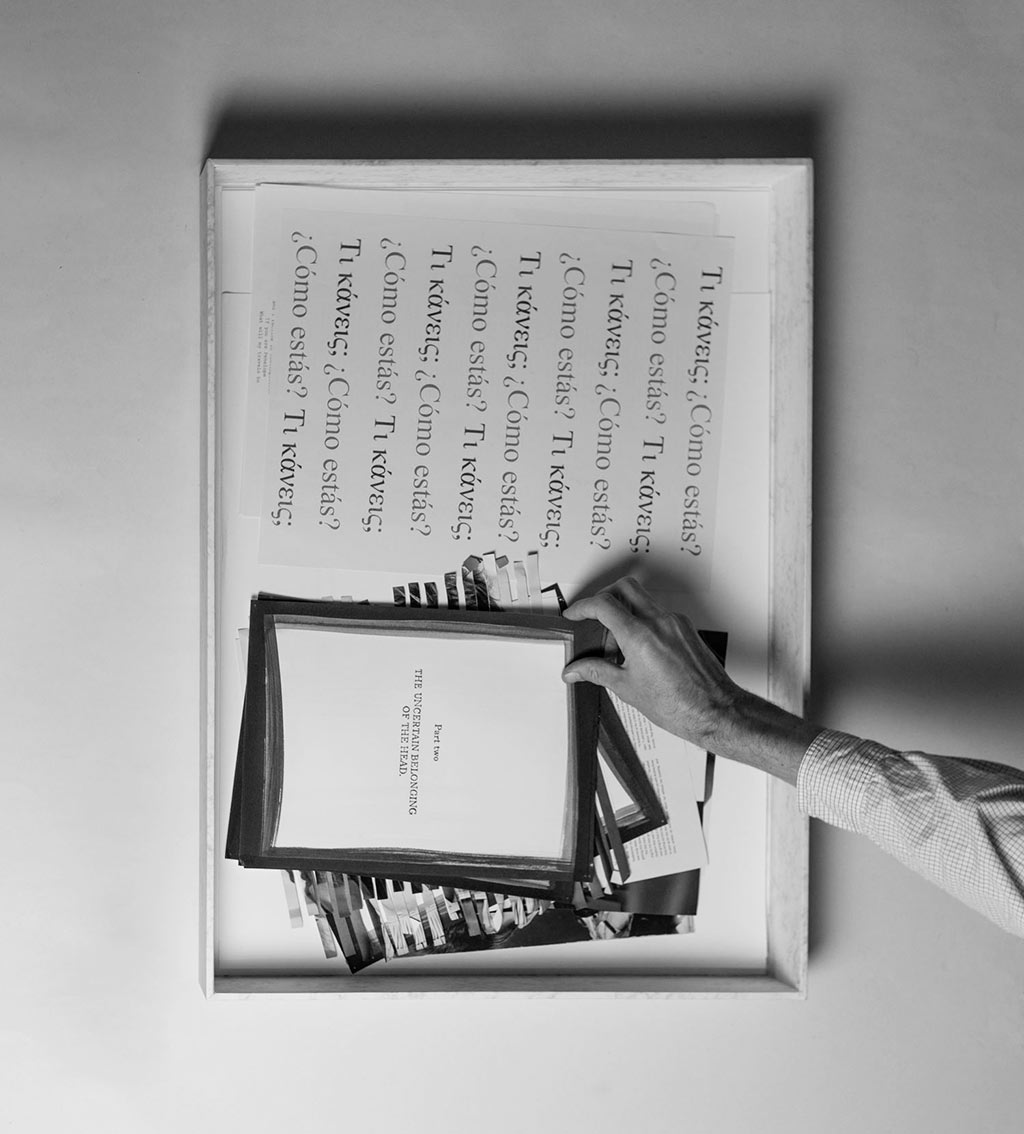 Τι κάνεις; ¿Cómo estás?
¿Cómo estás? Τι κάνεις;
Τι κάνεις; ¿Cómo estás?
¿Cómo estás? Τι κάνεις;
Τι κάνεις; ¿Cómo estás?
¿Cómo estás? Τι κάνεις;
Τι κάνεις; ¿Cómo estás?
¿Cómo estás? Τι κάνεις;
Τι κάνεις; ¿Cómo estás?
¿Cómo estás? Τι κάνεις;
If you are Penelope
What will my travels be
Part two
THE UNCERTAIN BELONGING
OF THE HEAD.